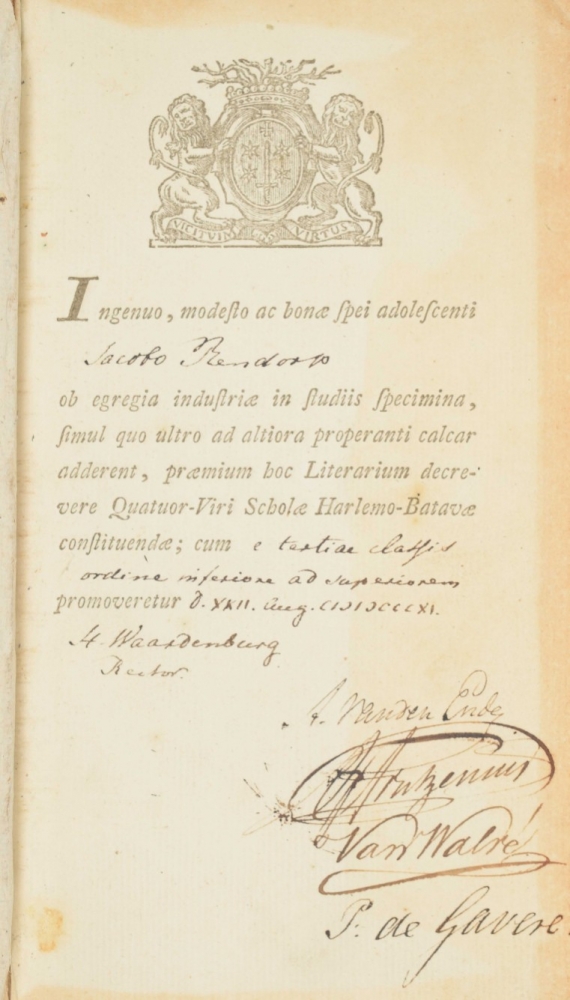 VICIT VIM VIRTUS
Ingenuo, modeſto ac bonæ ſpei adoleſcenti
Jacobo Rendorp
ob egregia induſtriæ in ſtudiis ſpecimina,
ſimul quo ultro ad altiora properanti calcar
adderent, præmium hoc Literarium decre-
vere Quatuor-Viri Scholæ Harlemo-Batavæ
conſtituendæ; cum e tertiae claſsis
ordine inferiore ad superiorem
promoveretur d. XXII. Aug. CIƆIƆCCCXI.
H. Waardenburg
Rector.
A. Vanden Ende
Van Walré
P. de Gavere.